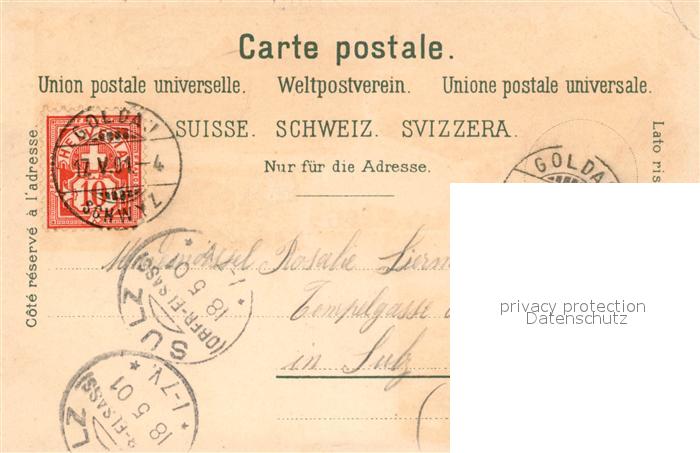 Carte postale.
Union postale universelle. Weltpostverein. Unione postale universale.
SUISSE. SCHWEIZ. SVIZZERA.
Nur für die Adresse.
Côté réservé à l'adresse.
Lato ris
HELVETIA
10
GOLDAU
17.V.01.-4
SCHWYZ
GOLDA
Rosalie
Tempelgasse
in Sulz
SULZ
(OBER-ELSASS)
18 5 01
LZ
R-ELSASS)
18 5 01
1-7V.
privacy protection
Datenschutz